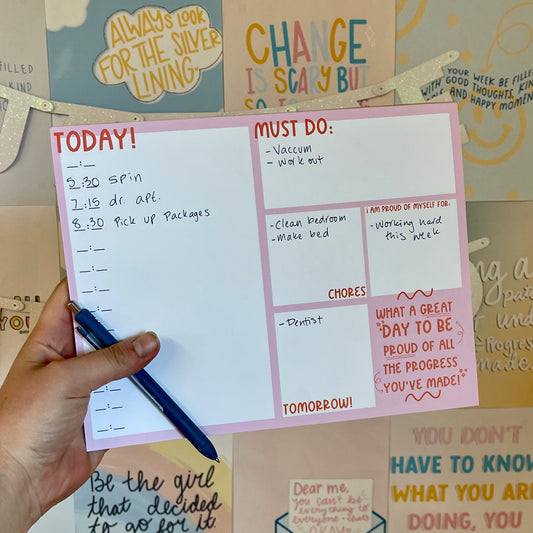 ALWAYS LOOK
FOR THE SILVER
LINING.
CHANGE
IS SCARY BUT
FILLED
YOUR WEEK BE FILLED
WITH GOOD THOUGHTS, KIND
AND HAPPY MOMENTS
TODAY!
__:__
5:30 Spin
7:15 dr. apt.
8:30 Pick up Packages
__:__
__:__
__:__
__:__
__:__
__:__
__:__
MUST DO:
- Vaccum
- Work out
- Clean bedroom
- Make bed
CHORES
I AM PROUD OF MYSELF FOR:
- Working hard
this week
- Dentist
TOMORROW!
WHAT A GREAT
DAY TO BE
PROUD OF ALL
THE PROGRESS
YOU'VE MADE!
Be the girl
that decided
to go for it
Dear me,
you can't be
everything to
everyone - that's
OKAY
YOU DON'T
HAVE TO KNOW
WHAT YOU ARE
DOING, YOU